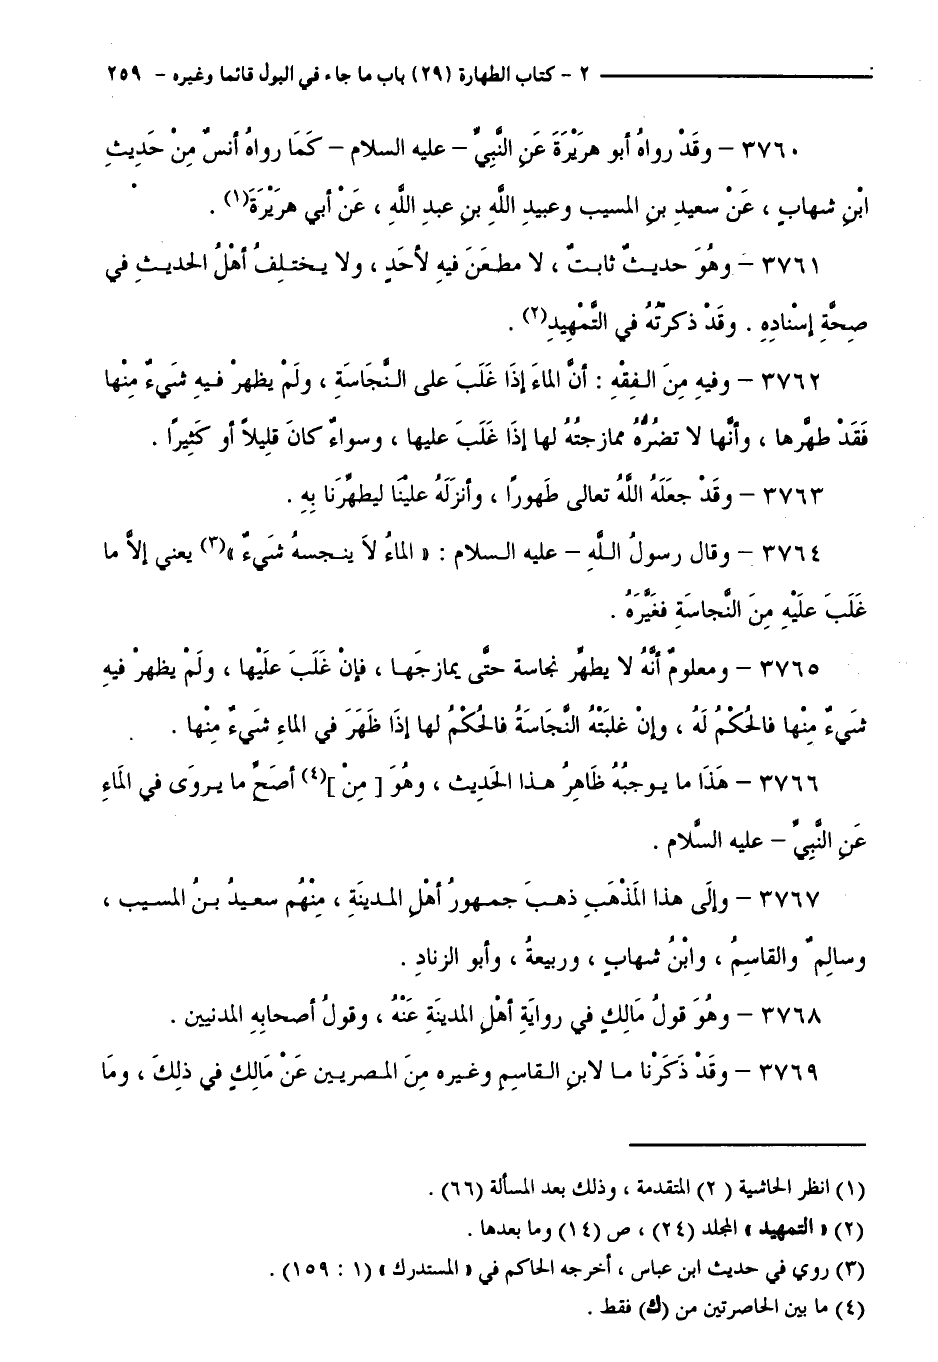 ٢ - كتاب الطهارة (٢٩) باب ما جاء في البول قائما وغيره - ٢٥٩
٣٧٦٠ - وقَدْ رواهُ أبو هرَيْرَةَ عَنِ النَّبِيِّ - عليه السلام - كَمَا رواهُ أنسٌ مِنْ حَديثِ
ابْنِ شهابٍ ، عَنْ سعيدِ بنِ المسيب وعبيدِ اللَّهِ بنِ عبدِ اللَّهِ ، عَنْ أبي هرَيْرَةَ(١) .
٣٧٦١ - وهُوَ حديثٌ ثابتٌ ، لا مطعَنَ فيهِ لأحَدٍ ، ولا يختلِفُ أهْلُ الحديثِ في
صِحَّةِ إسْنادِهِ . وقَدْ ذكرْتُهُ في التَّمْهِيدِ(٢) .
٣٧٦٢ - وفيهِ مِنَ الفِقْهِ : أنَّ الماءَ إذَا غَلَبَ على النَّجَاسَةِ ، ولَمْ يظهرْ فيهِ شَيءٌ مِنْها
فَقَدْ طهَّرها ، وأنَّها لا تضُرُّهُ ممازجتُهُ لها إذَا غَلَبَ عليها ، وسواءٌ كانَ قليلاً أو كَثيرًا .
٣٧٦٣ - وقَدْ جعَلَهُ اللَّهُ تعالى طَهورًا ، وأنزَلَهُ علينَا ليطهِّرَنا بِهِ .
٣٧٦٤ - وقال رسولُ اللَّهِ - عليه السلام : « الماءُ لاَ ينجسهُ شَيءٌ »(٣) يعني إلاَّ ما
غَلَبَ علَيْهِ مِنَ النَّجاسَةِ فغَيَّرَهُ .
٣٧٦٥ - ومعلومٌ أنَّهُ لا يطهِّر نجاسة حتَّى يمازجَها ، فإنْ غَلَبَ علَيْها ، ولَمْ يظهرْ فيهِ
شَيءٌ مِنْها فالحُكْمُ لَهُ ، وإنْ غلبَتْهُ النَّجاسَةُ فالحُكْمُ لها إذَا ظَهَرَ في الماءِ شَيءٌ مِنْها .
٣٧٦٦ - هَذَا ما يوجبُهُ ظَاهِرُ هذا الحَديث ، وهُوَ [ مِنْ ](٤) أصَحِّ ما يروَى في المَاءِ
عَنِ النَّبِيِّ - عليه السَّلام .
٣٧٦٧ - وإلَى هذا المَذْهَبِ ذهبَ جمهورُ أهْلِ المدينَةِ ، مِنْهُم سعيدُ بنُ المسيب ،
وسالِمٌ والقاسِمُ ، وابْنُ شهابٍ ، وربيعةُ ، وأبو الزنادِ .
٣٧٦٨ - وهُوَ قولُ مَالِكٍ في روايَةِ أهْلِ المدينَةِ عَنْهُ ، وقولُ أصحابِهِ المدنيين .
٣٧٦٩ - وقَدْ ذَكَرْنا ما لابنِ القاسِمِ وغيره مِنَ المصريين عَنْ مَالِكٍ في ذلِكَ ، ومَا
(١) انظر الحاشية ( ٢) المتقدمة ، وذلك بعد المسألة (٦٦) .
(٢) « التمهيد » المجلد (٢٤) ، ص (١٤) وما بعدها .
(٣) روي في حديث ابن عباس ، أخرجه الحاكم في « المستدرك » (١ : ١٥٩) .
(٤) ما بين الحاصرتين من (ك) فقط .